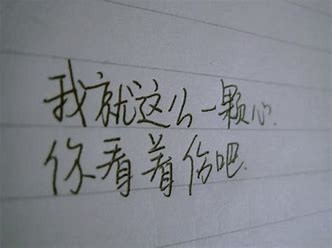 我就这么一颗心.
你看着伤吧.